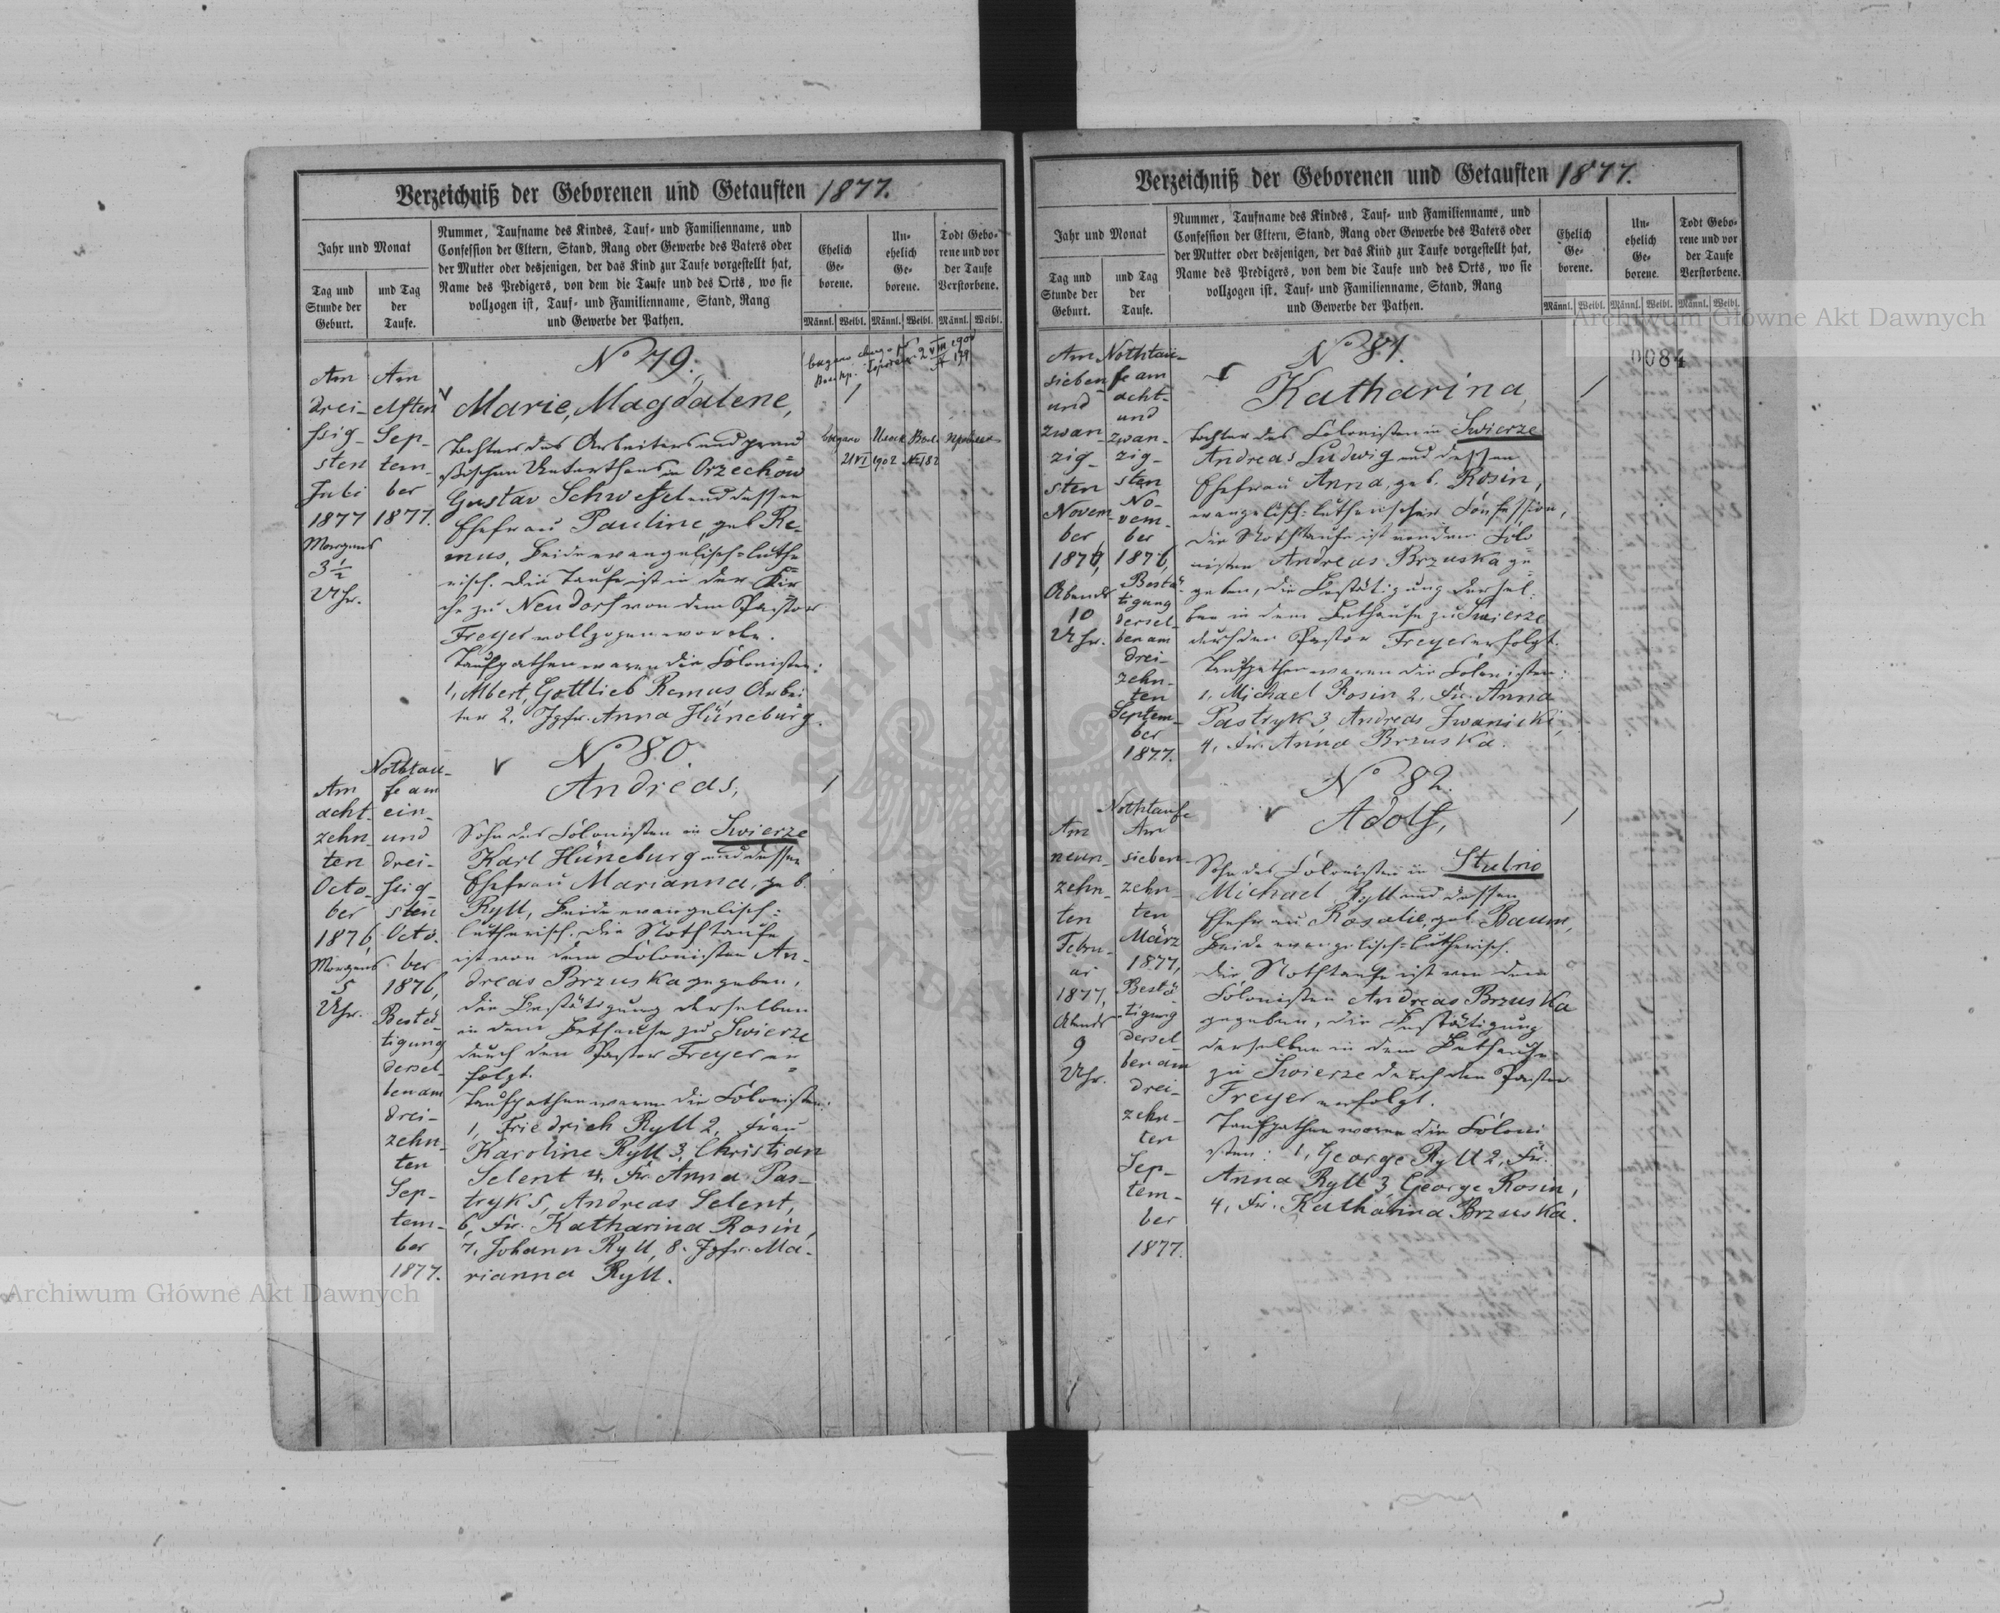 Verzeichniß der Geborenen und Getauften 1877.
Jahr und Monat
Tag und
Stunde der
Geburt.
und Tag
der
Taufe.
Nummer, Taufname des Kindes, Tauf- und Familienname, und
Confession der Eltern, Stand, Rang oder Gewerbe des Vaters oder
der Mutter oder desjenigen, der das Kind zur Taufe vorgestellt hat,
Name des Predigers, von dem die Taufe und des Orts, wo sie
vollzogen ist, Tauf- und Familienname, Stand, Rang
und Gewerbe der Pathen.
Ehelich
Ge-
borene.
Un-
ehelich
Ge-
borene.
Todt Gebo-
rene und vor
der Taufe
Verstorbene.
Männl. Weibl. Männl. Weibl. Männl. Weibl.
Am
drei-
ssig-
sten
Juli
1877
Morgens
3 1/2
Uhr.
Am
elften
Sep-
tem-
ber
1877.
No 79.
Marie, Magdalene,
Tochter des Arbeiters und preu-
ßischen Unterthans in Orzechów
Gustav Schwefel und dessen
Ehefrau Pauline, geb. Re-
mus, Beide evangelisch-luthe-
risch. Die Taufe ist in der Kir-
che zu Neudorf von dem Pastor
Freyer vollzogen worden.
Taufpathen waren die Colonisten:
1, Albert, Gottlieb Remus, Arbei-
ter 2. Jgfr. Anna Hüneburg.
1
Am
acht-
zehn-
ten
Octo-
ber
1876,
Morgens
5
Uhr.
Nothtau-
fe am
ein-
und
drei-
ssig-
sten
Octo-
ber
1876,
Bestä-
tigung
dersel-
ben am
drei-
zehn-
ten
Sep-
tem-
ber
1877.
No 80.
Andreas,
Sohn des Colonisten in Swierze
Karl Hüneburg und dessen
Ehefrau Marianna, geb.
Ryll, Beide evangelisch-
lutherisch. Die Nothtaufe
ist von dem Colonisten An-
dreas Brzuska gegeben,
die Bestätigung derselben
in dem Bethause zu Swierze
durch den Pastor Freyer er-
folgt.
Taufpathen waren die Colonisten:
1, Friedrich Ryll 2, Frau
Karoline Ryll 3, Christian
Selent 4, Fr. Anna Pas-
tryk 5, Andreas Selent,
6, Fr. Katharina Rosin,
7, Johann Ryll, 8. Jgfr. Ma-
rianna Ryll.
1
Verzeichniß der Geborenen und Getauften 1877.
Jahr und Monat
Tag und
Stunde der
Geburt.
und Tag
der
Taufe.
Nummer, Taufname des Kindes, Tauf- und Familienname, und
Confession der Eltern, Stand, Rang oder Gewerbe des Vaters oder
der Mutter oder desjenigen, der das Kind zur Taufe vorgestellt hat,
Name des Predigers, von dem die Taufe und des Orts, wo sie
vollzogen ist, Tauf- und Familienname, Stand, Rang
und Gewerbe der Pathen.
Ehelich
Ge-
borene.
Un-
ehelich
Ge-
borene.
Todt Gebo-
rene und vor
der Taufe
Verstorbene.
Männl. Weibl. Männl. Weibl. Männl. Weibl.
0084
Am
sieben
und
zwan-
zig-
sten
Novem-
ber
1876,
Abends
10
Uhr.
Nothtau-
fe am
acht-
und
zwan-
zig-
sten
No-
vem-
ber
1876,
Bestä-
tigung
dersel-
ben am
drei-
zehn-
ten
Septem-
ber
1877.
No 81.
Katharina,
Tochter des Colonisten in Swierze
Andreas Ludwig und dessen
Ehefrau Anna, geb. Rosin,
evangelisch-lutherischer Confession,
Die Nothtaufe ist von dem Colo-
nisten Andreas Brzuska ge-
geben, die Bestätigung dersel-
ben in dem Bethause zu Swierze
durch den Pastor Freyer erfolgt.
Taufpathen waren die Colonisten:
1, Michael Rosin 2, Fr. Anna
Pastryk 3, Andreas Iwanicki,
4, Fr. Anna Brzuska.
1
Am
neun-
zehn-
ten
Febru-
ar
1877,
Abends
9
Uhr.
Nothtaufe
Am
sieben-
zehn-
ten
März
1877,
Bestä-
tigung
dersel-
ben am
drei-
zehn-
ten
Sep-
tem-
ber
1877.
No 82.
Adolf,
Sohn des Colonisten in Stulno
Michael Ryll und dessen
Ehefrau Rosalie, geb. Baum,
Beide evangelisch-lutherisch.
Die Nothtaufe ist von dem
Colonisten Andreas Brzuska
gegeben, die Bestätigung
derselben in dem Bethause
zu Swierze durch den Pastor
Freyer erfolgt.
Taufpathen waren die Coloni-
sten: 1, George Ryll 2, Fr.
Anna Ryll 3, George Rosin,
4, Fr. Katharina Brzuska.
1
Archiwum Główne Akt Dawnych
Archiwum Główne Akt Dawnych